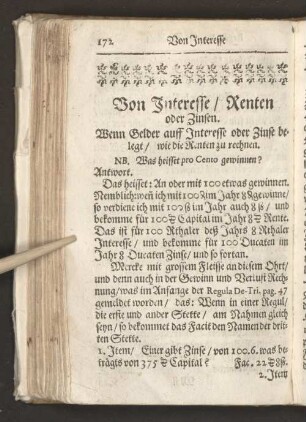 172 Von Interesse
Von Interesse / Renten
oder Zinsen.
Wenn Gelder auff Interesse oder Zinse be-
legt / wie die Renten zu rechnen.
NB. Was heisset pro Cento gewinnen?
Antwort.
Das heisset: An oder mit 100 etwas gewinnen.
Nemblich: weñ ich mit 100 ℔ im Jahr 8 ℔ gewinne /
so verdiene ich mit 100 ß im Jahr auch 8 ß / und
bekomme für 100 ℔ Capital im Jahr 8 ℔ Rente.
Das ist für 100 Rthaler deß Jahrs 8 Rthaler
Interesse / und bekomme für 100 Ducaten im
Jahr 8 Ducaten Zinse / und so fortan.
Mercke mit grossem Fleisse an diesem Ohrt /
und denn auch in der Gewinn und Verlust Rech-
nung / was im Anfange der Regula De-Tri. pag. 47
gemeldet worden / das: Wenn in einer Regul /
die erste und ander Stette / am Nahmen gleich
seyn / so bekommet das Facit den Namen der drit-
ten Stette.
1. Item / Einer gibt Zinse / von 100. 6. was be-
trägts von 375 ℔ Capital? Fac. 22 ℔ 8 ß.
2. Item